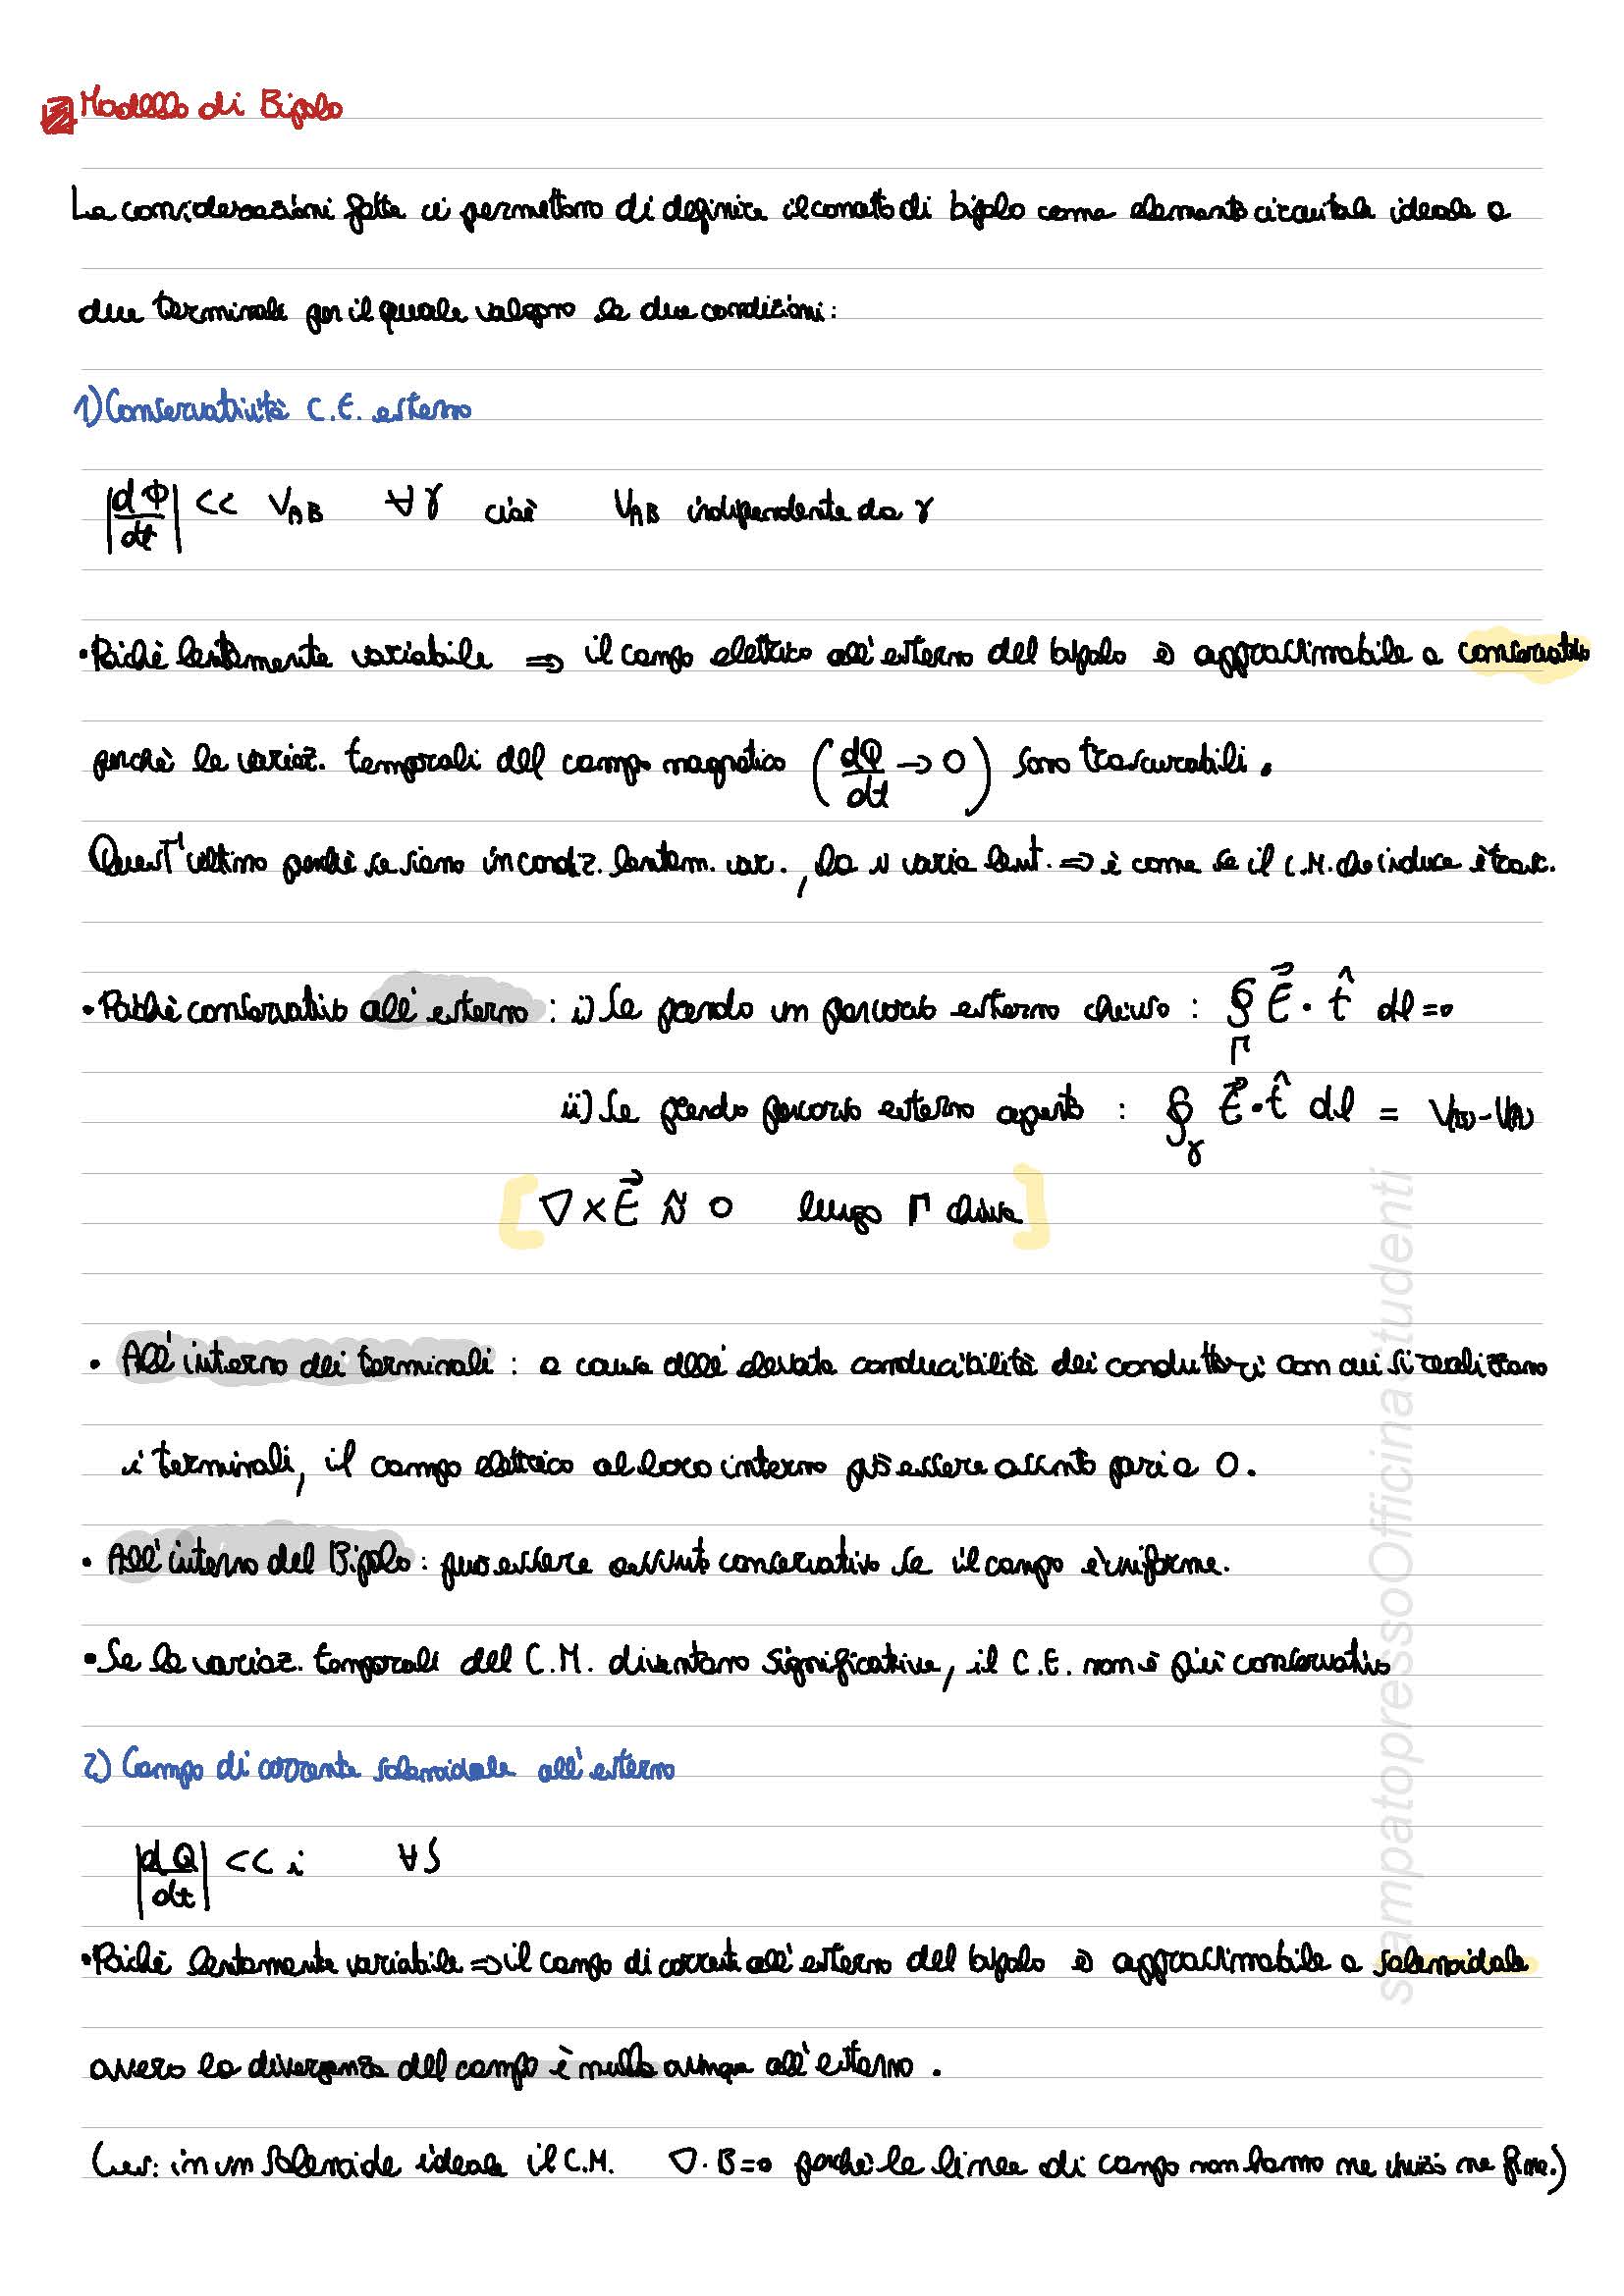 Modello di Bipolo
Le considerazioni fatte ci permettono di definire il concetto di bipolo come elemento circuitale ideale a
due terminali per il quale valgono le due condizioni:
1) Conservatività C.E. esterno
|dΦ/dt| << V_AB ∀γ cioè V_AB indipendente da γ
• Poichè lentamente variabile ⇒ il campo elettrico all'esterno del bipolo è approssimabile a conservativo
perchè le variaz. temporali del campo magnetico (dΦ/dt → 0) sono trascurabili.
Quest'ultimo perchè se siamo in condiz. lentam. var., la i varia lent. ⇒ è come se il C.M. che induce è trasc.
• Poichè conservativo all'esterno: i) Se prendo un percorso esterno chiuso: ∮_Γ E⃗ · t̂ dl = 0
ii) Se prendo percorso esterno aperto: ∮_γ E⃗ · t̂ dl = V(B) - V(A)
[∇ × E⃗ ≈ 0 lungo Γ chiusa]
• All'interno dei terminali: a causa dell'elevata conducibilità dei conduttori con cui si realizzano
i terminali, il campo elettrico al loro interno può essere assunto pari a 0.
• All'interno del Bipolo: può essere assunto conservativo se il campo è uniforme.
• Se le variaz. temporali del C.M. diventano significative, il C.E. non è più conservativo
2) Campo di corrente solenoidale all'esterno
|dQ/dt| << i ∀S
• Poichè lentamente variabile ⇒ il campo di corrente all'esterno del bipolo è approssimabile a solenoidale
ovvero la divergenza del campo è nulla ovunque all'esterno.
(es: in un solenoide ideale il C.M. ∇ · B = 0 perchè le linee di campo non hanno ne inizio ne fine.)
stampatopressoOfficinaStudenti